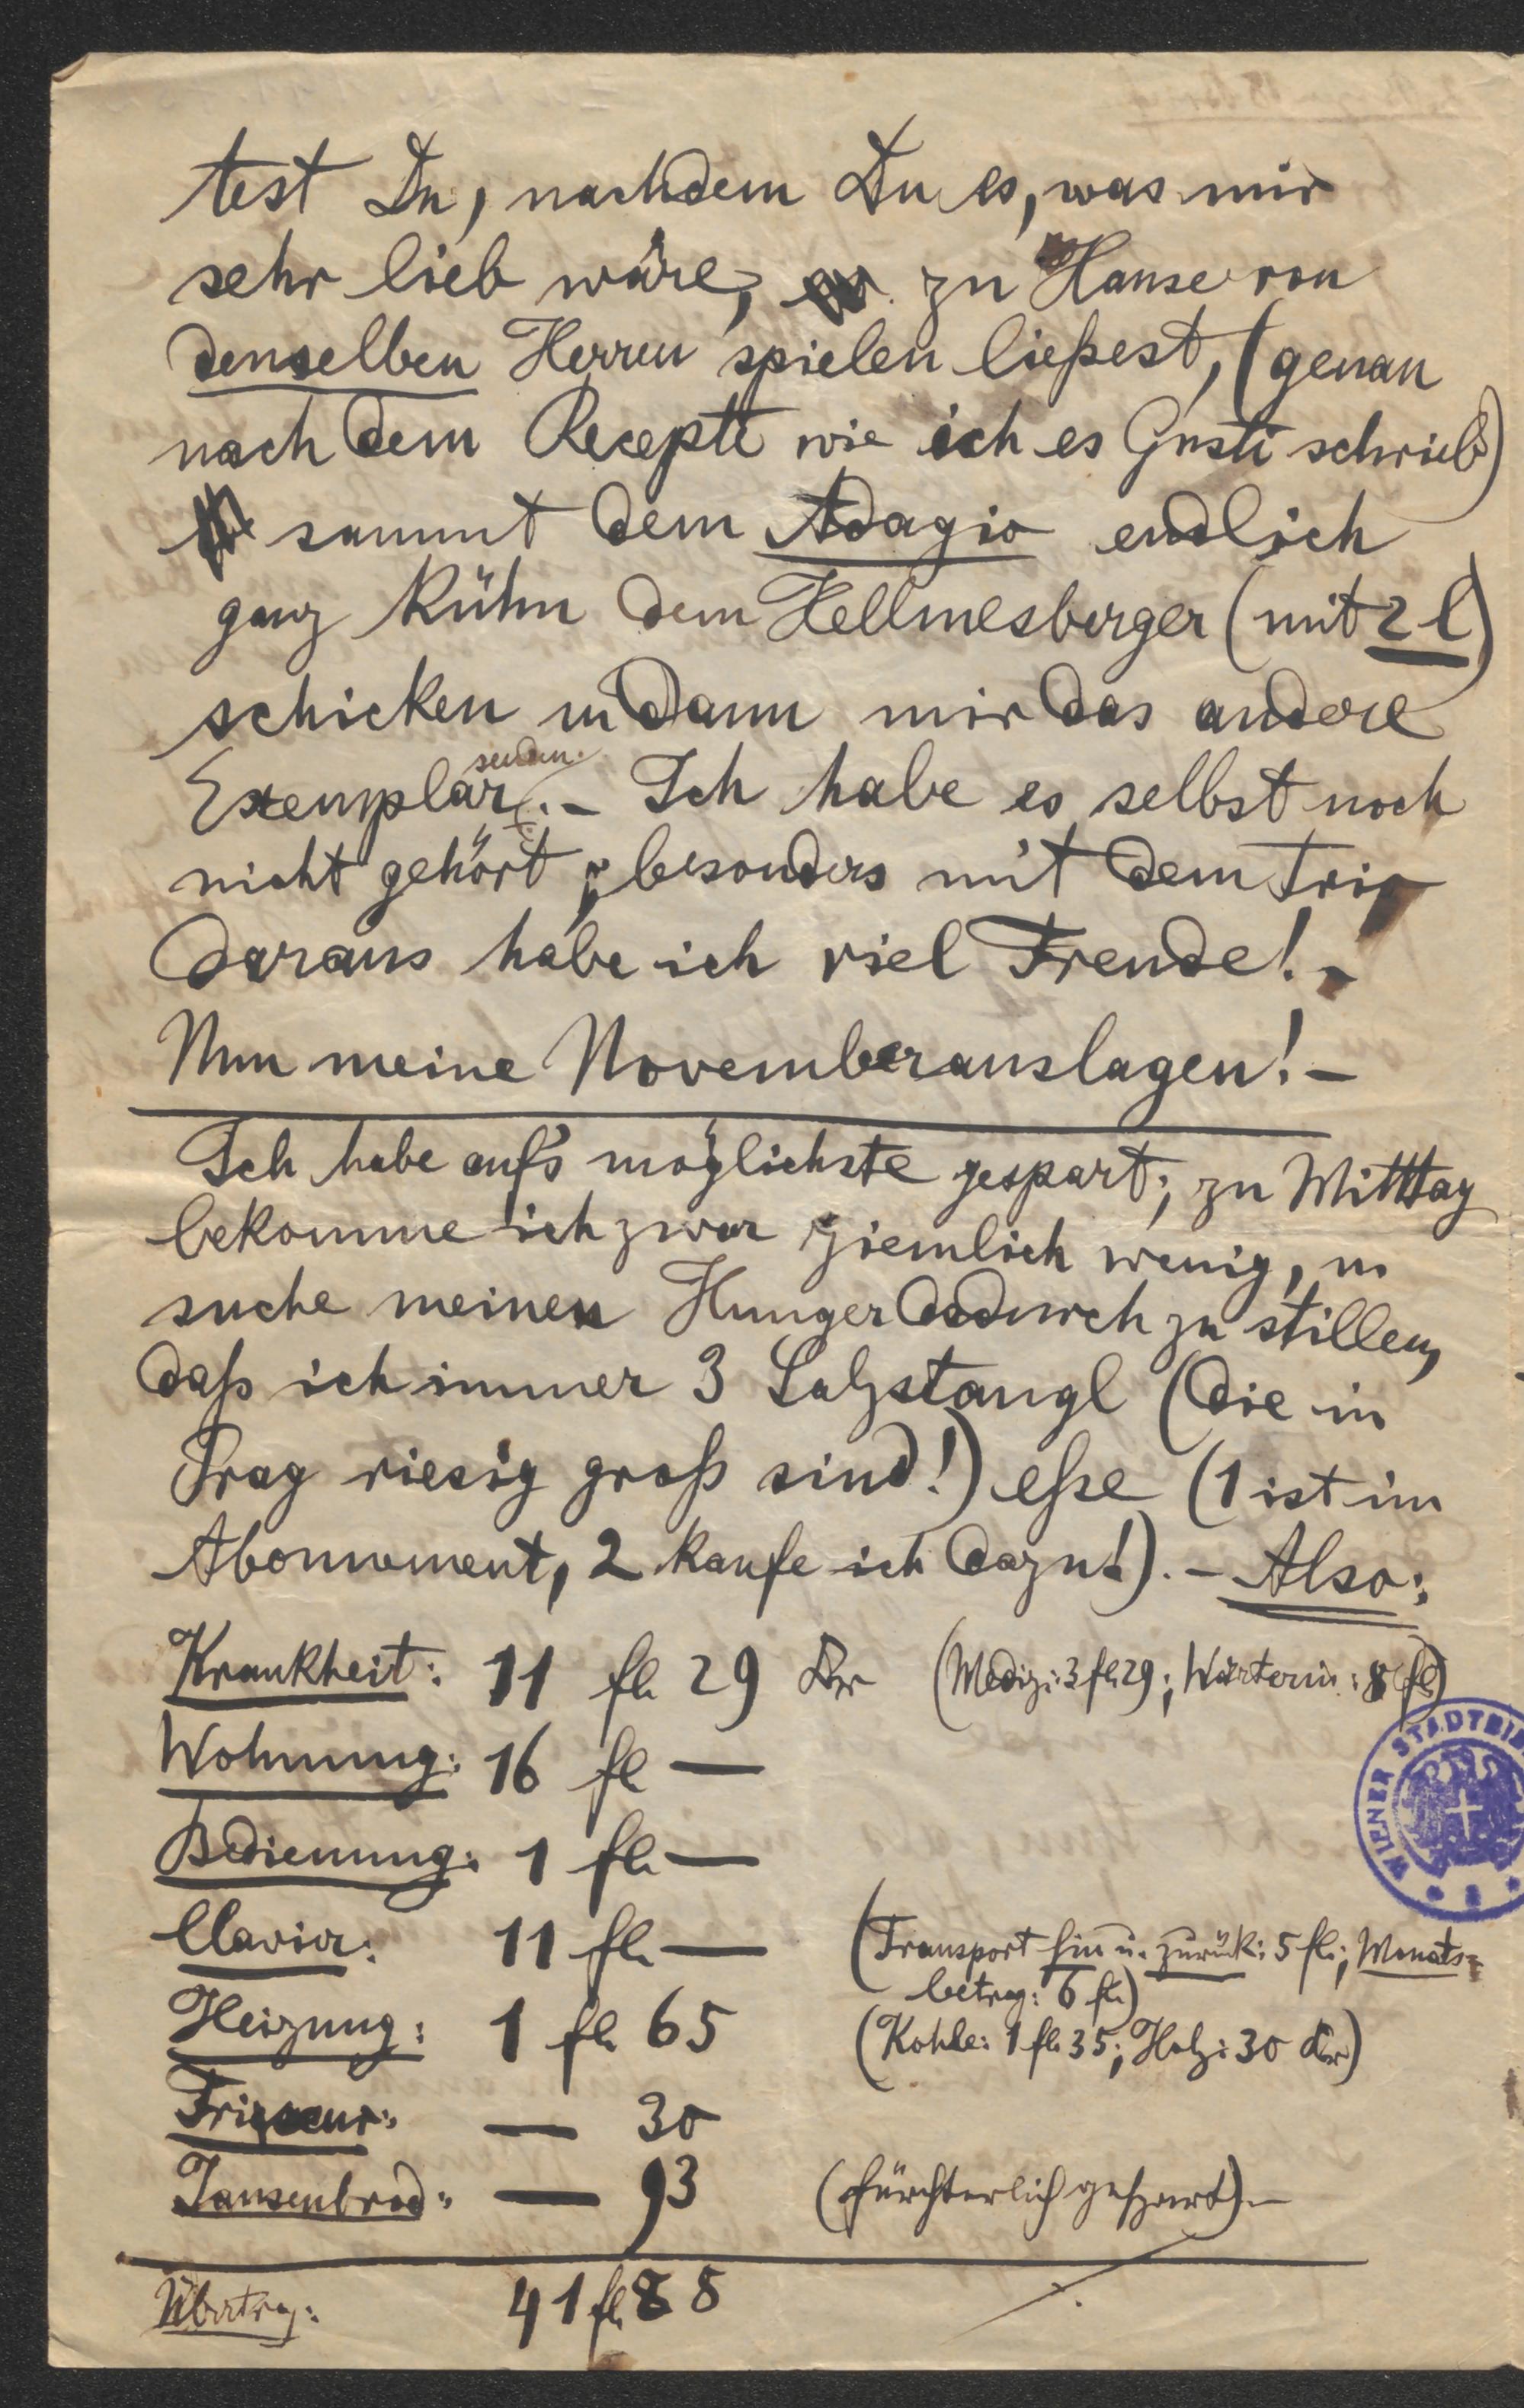 test Du, nachdem Du es, was mir
sehr lieb wäre, zu Hause von
denselben Herren spielen ließest, (genau
nach dem Recepte wie ich es Gusti schrieb)
sammt dem Adagio endlich
ganz kühn dem Hellmesberger (mit 2 l)
schicken u dann mir das andere
Exemplar senden. – Ich habe es selbst noch
nicht gehört; besonders mit dem Trio
daraus habe ich viel Freude! –
Nun meine Novemberauslagen! –
Ich habe auf's möglichste gespart; zu Mitttag
bekomme ich zwar ziemlich wenig, u
suche meinen Hunger dadurch zu stillen,
daß ich immer 3 Salzstangl (die in
Prag riesig groß sind!) eße (1 ist im
Abonnement, 2 kaufe ich dazu!). – Also:
Krankheit: 11 fl. 29 kr (Mediz: 3 fl. 29; Wärterin: 8 fl)
Wohnung: 16 fl —
Bedienung: 1 fl. —
Clavier: 11 fl. — (Transport hin u. zurück: 5 fl.; Monats-
betrag: 6 fl.)
Heizung: 1 fl. 65 (Kohle: 1 fl. 35; Holz: 30 kr)
Friseur: — 30
Jausenbrod: — 93 (fürchterlich gespart). –
Übertrag: 41 fl. 88
WIENER STADTBI